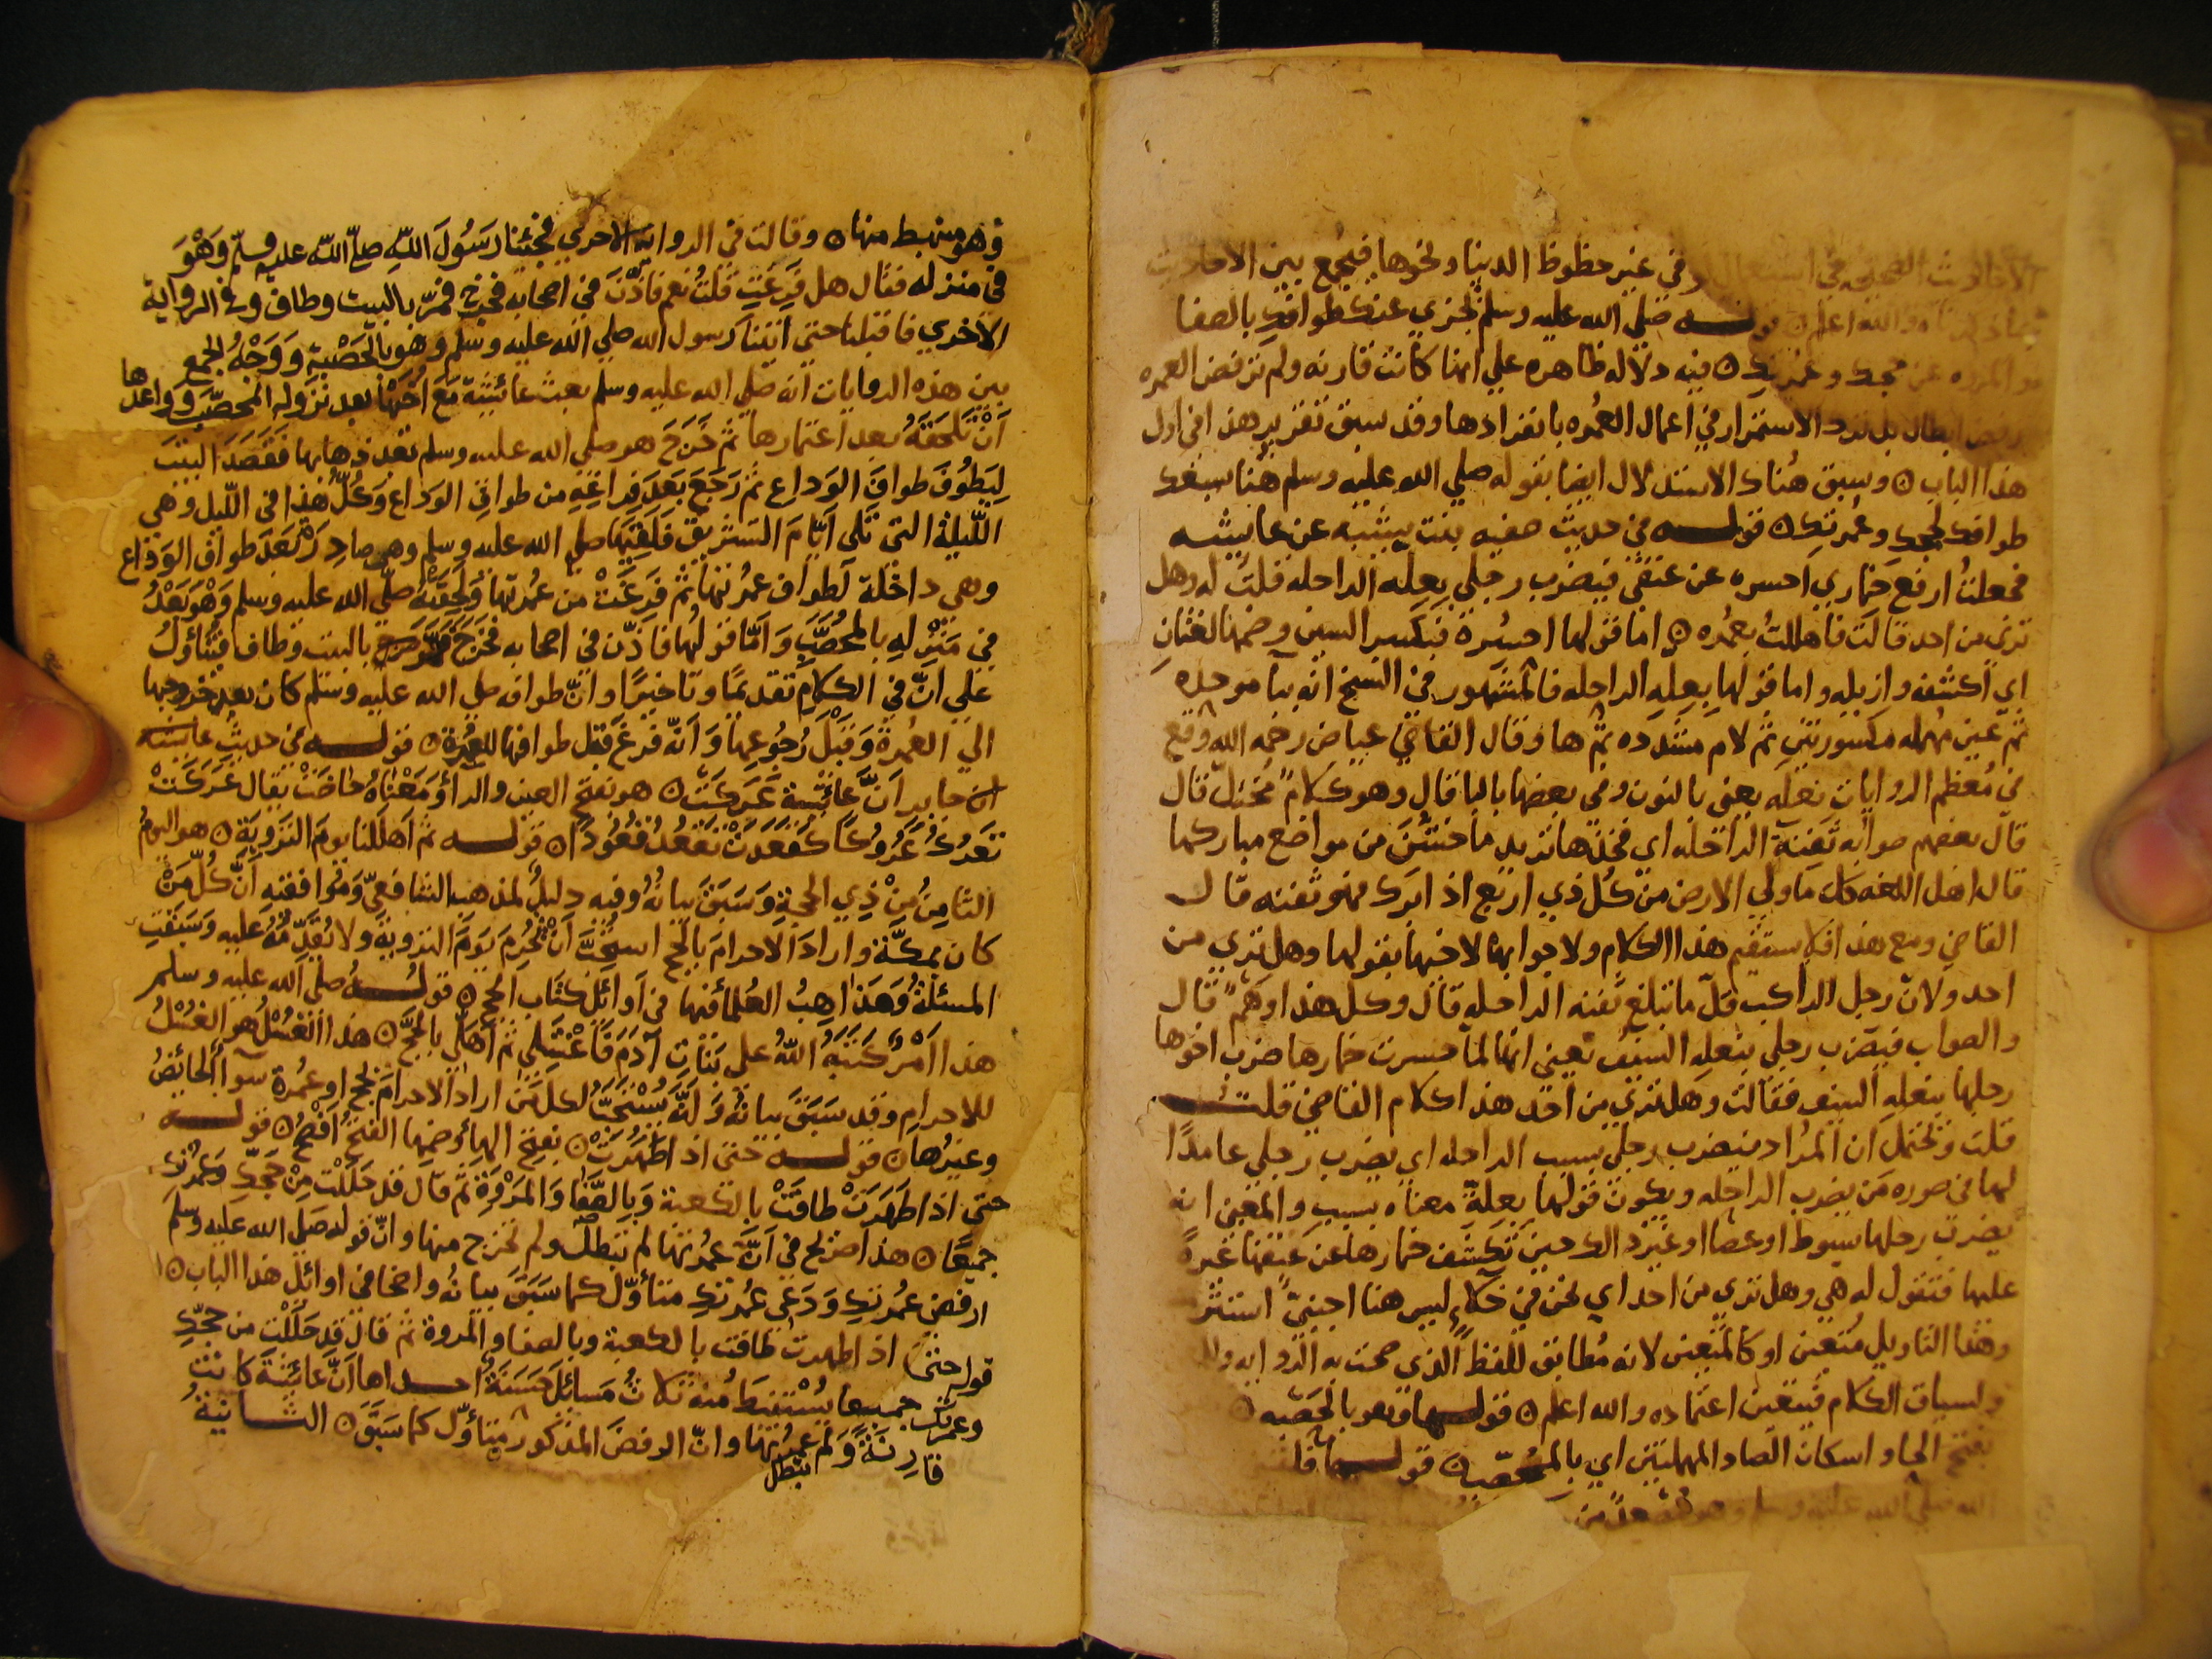 الاحاديث الصحيحه في استعمال لو في غير حظوظ الدنيا ونحوها فيجمع بين الاحاديث
بما ذكرناه والله اعلم ٥ قوله صلي الله عليه وسلم يجزي عنك طوافك بالصفا
والمروه عن حجك وعمرتك ٥ فيه دلاله ظاهره علي انها كانت قارنه ولم ترفض العمره
رفض ابطال بل ترك الاستمرار في اعمال العمره بانفرادها وقد سبق تقرير هذا في اول
هذا الباب ٥ وسبق هناك الاستدلال ايضا بقوله صلي الله عليه وسلم هنا يسعك
طوافك لحجك وعمرتك ٥ قوله في حديث صفيه بنت شيبه عن عايشه
فجعلت ارفع خماري احسره عن عنقي فيضرب رجلي بعله الراحله قلت له وهل
تري من احد قالت فاهللت بعمره ٥ اما قولها احسره فبكسر السين وضمها لغتان
اي اكشفه وازيله واما قولها بعله الراحله فالمشهور في النسخ انه بيا موحده
ثم عين مهمله مكسورتين ثم لام مشدده ثم ها وقال القاضي عياض رحمه الله وقع
في معظم الروايات نعله يعني بالنون وفي بعضها بالبا قال وهو كلام مختل قال
قال بعضهم صوابه ثفنة الراحله اي فخذها تريد ما خشن من مواضع مباركها
قال اهل اللغه كل ما ولي الارض من كل ذي اربع اذا برك فهو ثفنه قال
القاضي ومع هذا فلا يستقيم هذا الكلام ولا جوابها لاخيها بقولها وهل تري من
احد ولان رجل الراكب قل ما تبلغ ثفنه الراحله قال وكل هذا وهم قال
والصواب فيضرب رجلي بنعله السيف تعني انها لما حسرت خمارها ضرب اخوها
رجلها بنعله السيف فقالت وهل تري من احد هذا كلام القاضي قلت
قلت ويحتمل ان المراد فيضرب رجلي بسبب الراحله اي يضرب رجلي عامدا
لها في صوره من يضرب الراحله ويكون قولها بعلة معناه بسبب والمعني انه
يضرب رجلها بسوط او عصا او غير ذلك حين تكشف خمارها عن عنقها غيرة
عليها فتقول له هي وهل تري من احد اي نحن في خلاء ليس هنا اجنبي استتر
وهذا التاويل متعين او كالمتعين لانه مطابق للفظ الذي صحت به الروايه
ولسياق الكلام فيتعين اعتماده والله اعلم ٥ قولها وهو بالحصبه ٥
بفتح الحا واسكان الصاد المهملتين اي بالمحصب ٥ قولها
الله صلي الله عليه وسلم وهو مصعد من
وهو منهبط منها ٥ وقالت في الرواية الاخري فجئنا رسول الله صلّى اللّه عليه وسلم وَهْوَ
في منزله فقال هل فرغت قلت نعم فاذّن في اصحابه فخرج فمرّ بالبيت وطاف وفى الرواية
الاخري فاقبلنا حتي اتينا رسول الله صلي الله عليه وسلم وهو بالحصبة ووجه الجمع
بين هذه الروايات انه صلي الله عليه وسلم بعث عائشة مع اخيها بعد نزوله المحصب وواعدها
أن تلحقه بعد اعتمارها ثم خرج هو صلي الله عليه وسلم بعد ذهابها فقصد البيت
ليطوف طواف الوداع ثم رجع بعد فراغه من طواف الوداع وكل هذا في الليل وهي
الليلة التي تلي أيام التشريق فلقيها صلي الله عليه وسلم وهو صادر بعد طواف الوداع
وهي داخلة لطواف عمرتها ثم فرغت من عمرتها ولحقته صلّى الله عليه وسلم وهو بعدُ
في منزله بالمحصب وأما قولها فاذّن في اصحابه فخرج فمر بالبيت وطاف فيتأول
علي انّ في الكلام تقديما وتاخيرا وانّ طوافه صلي الله عليه وسلم كان بعد خروجها
الي العمرة وقبل رجوعها وأنه فرغ قبل طوافها للعمرة ٥ قوله في حديث عائشة
جابر أن عائشة عركت ٥ هو بفتح العين والراء ومعناه حاضت يقال عركت
تعرك عروكا كقعدت تقعد قعودا ٥ قوله ثم أهللنا يوم التروية ٥ هو اليوم
الثامن من ذي الحجة وسبق بيانه وفيه دليل لمذهب الشافعي وموافقيه أن كل من
كان بمكة واراد الاحرام بالحج استحب أن يحرم يوم التروية ولا يقدمه عليه وسبقت
المسئلة ومذاهب العلماء فيها في أوائل كتاب الحج ٥ قوله صلي الله عليه وسلم
هذا أمر كتبه الله على بنات آدم فاغتسلي ثم أهلّي بالحج ٥ هذا الغسل هو الغسل
للاحرام وقد سبق بيانه وأنه يستحب لكل من اراد الاحرام بحج او عمرة سوآ الحائض
وغيرها ٥ قوله حتي اذا طهرت ٥ بفتح الهاء وضمها الفتح أفصح ٥ قوله
حتى اذا طهرت طافت بالكعبة وبالصفا والمروة ثم قال قد حللت من حجك وعمرتك
جميعا ٥ هذا صريح في أن عمرتها لم تبطل ولم تخرج منها وانّ قوله صلى الله عليه وسلم
ارفضي عمرتك ودعي عمرتك متأول كما سبق بيانه واضحا في اوائل هذا الباب ٥
قوله (حتى) اذا طهرت طافت بالكعبة وبالصفا والمروة ثم قال قد حللت من حجّك
وعمرتك جميعا يستنبط منه ثلاث مسائل حسنة احداها أنّ عائشة كانت
قارنة ولم تبطل عمرتها وانّ الرفض المذكور متأول كما سبق ٥ الثانية